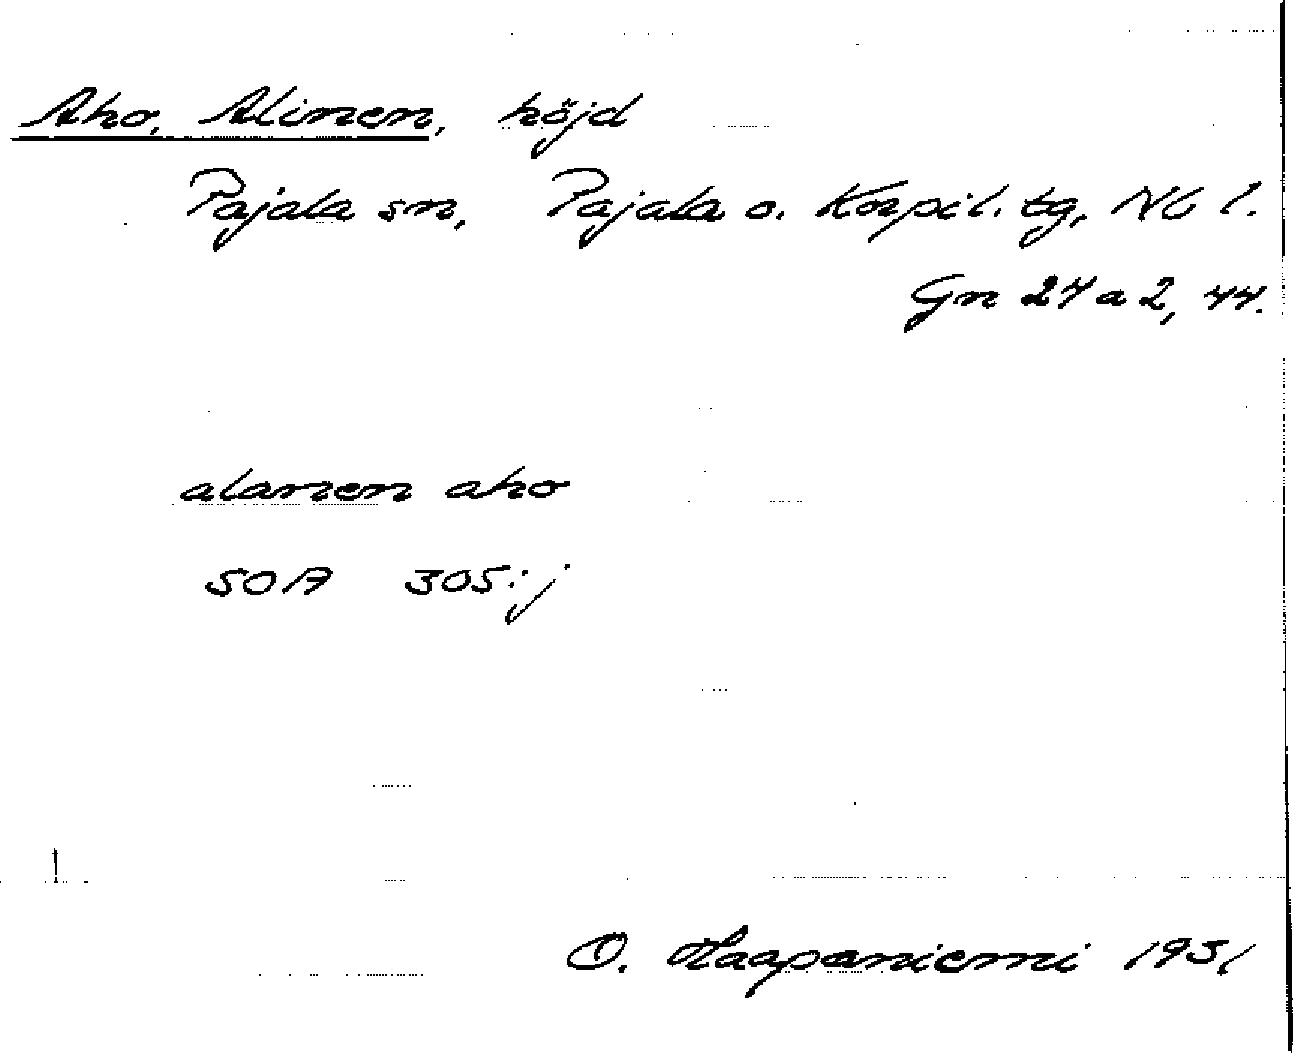 Aho, Alinen, höjd
Pajala sn, Pajala o. Korpil. tg, Nb l.
Gn 24 a 2, 44.
alanen aho
SOA 305:j
O. Haapaniemi 1931